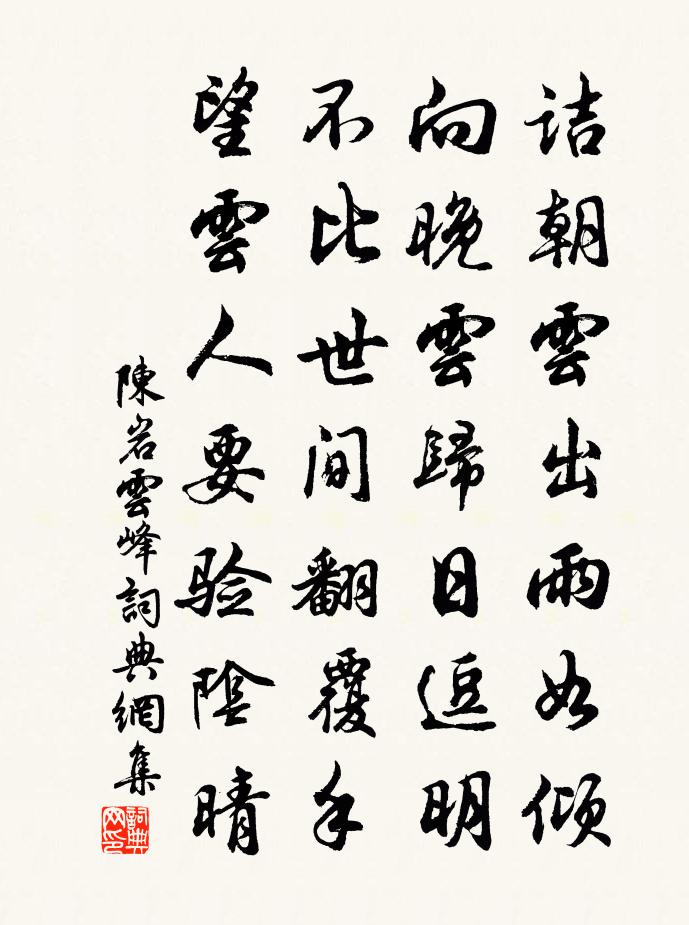 詰朝雲出雨如傾
向晚雲歸日逗明
不比世間翻覆手
望雲人要验陰晴
陳岩雲峰詞典網集
詞典网印